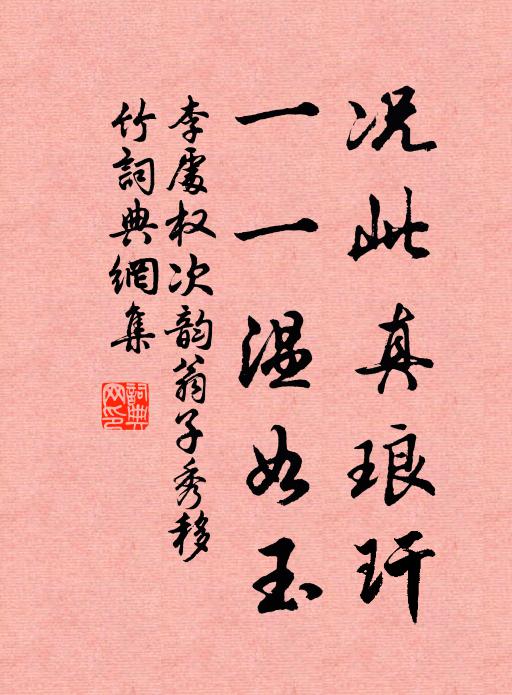 况此真琅玕
一一温如玉
李處权次韵翁子秀移
竹詞典網集
詞典网印